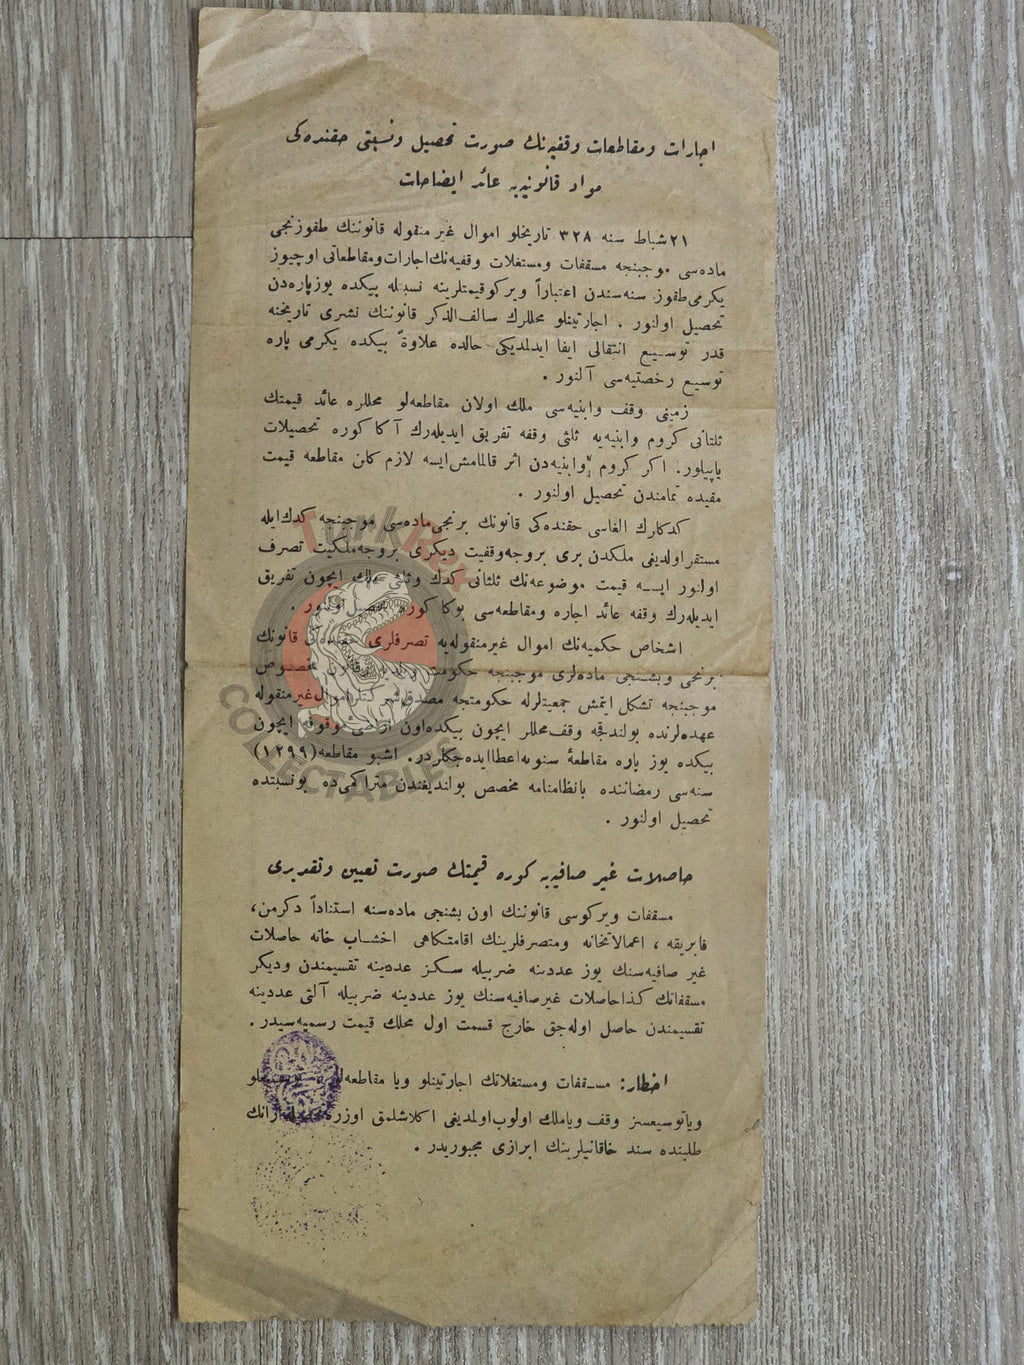 اجارات ومقاطعات وقفیه‌نك صورت تحصیل ونسبتی حقنده‌كی
مواد قانونیه‌یه عائد ایضاحات
٢١ شباط سنه ٣٢٨ تاریخلو اموال غیر منقوله قانوننك طقوزنجی
ماده‌سی موجبنجه مسقفات ومستغلات وقفیه‌نك اجارات ومقاطعاتی اوچیوز
یكرمی طقوز سنه‌سندن اعتباراً ویركو قیمتلرینه نسبتله بیكده یوز پاره‌دن
تحصیل اولنور . اجارتینلو محللرك سالف‌الذكر قانوننك نشری تاریخنه
قدر توسیع انتقالی ایفا ایدلمدیكی حالده علاوةً بیكده یكرمی پاره
توسیع رخصتیه‌سی آلنور .
زمینی وقف وابنیه‌سی ملك اولان مقاطعه‌لو محللره عائد قیمتك
ثلثانی كروم وابنیه‌یه ثلثی وقفه تفریق ایدیله‌رك آكا كوره تحصیلات
یاپیلور. اكر كروم وابنیه‌دن اثر قالمامش ایسه لازم كلن مقاطعه قیمت
مقیده تمامندن تحصیل اولنور .
كدكلرك الغاسی حقنده‌كی قانونك برنجی ماده‌سی موجبنجه كدك ایله
مستقر اولدیغی ملكدن بری بروجه وقفیت دیكری بروجه ملكیت تصرف
اولنور ایسه قیمت موضوعه‌نك ثلثانی كدك وثلثی ملك ایچون تفریق
ایدیله‌رك وقفه عائد اجاره ومقاطعه‌سی بوكا كوره تحصیل اولنور .
اشخاص حكمیه‌نك اموال غیر منقوله‌یه تصرفلری قانونك
برنجی وبشنجی ماده‌لری موجبنجه حكومت مخصوص
موجبنجه تشكل ایتمش جمعیتلرله حكومتجه مصدق اموال غیر منقوله
عهده‌لرنده بولندقجه وقف محللر ایچون بیكده اون اراضی موقوفه ایچون
بیكده یوز پاره مقاطعهٔ سنویه اعطا ایده‌جكلردر. اشبو مقاطعه (١٢٩٩)
سنه‌سی رمضاننده بانظامنامه مخصص بولندیغندن متراكمی ده بونسبتده
تحصیل اولنور .
حاصلات غیر صافیه‌یه كوره قیمتك صورت تعیین وتقدیری
مسقفات ویركوسی قانوننك اون بشنجی ماده‌سنه استناداً دكرمن،
فابریقه ، اعمالاتخانه ومتصرفلرینك اقامتكاهی اخشاب خانه حاصلات
غیر صافیه‌سنك یوز عددینه ضربیله سكز عددینه تقسیمندن ودیكر
مسقفاتك كذا حاصلات غیر صافیه‌سنك یوز عددینه ضربیله آلتی عددینه
تقسیمندن حاصل اوله‌جق خارج قسمت اول محلك قیمت رسمیه‌سیدر .
اخطار: مسقفات ومستغلاتك اجارتینلو ویا مقاطعه‌لو
ویاتوسیعسز وقف ویاملك اولوب اولمدیغی اكلاشلمق اوزره
طلبنده سند خاقانیلرینك ابرازی مجبوریدر .
TurkRex
COLLECTABLE